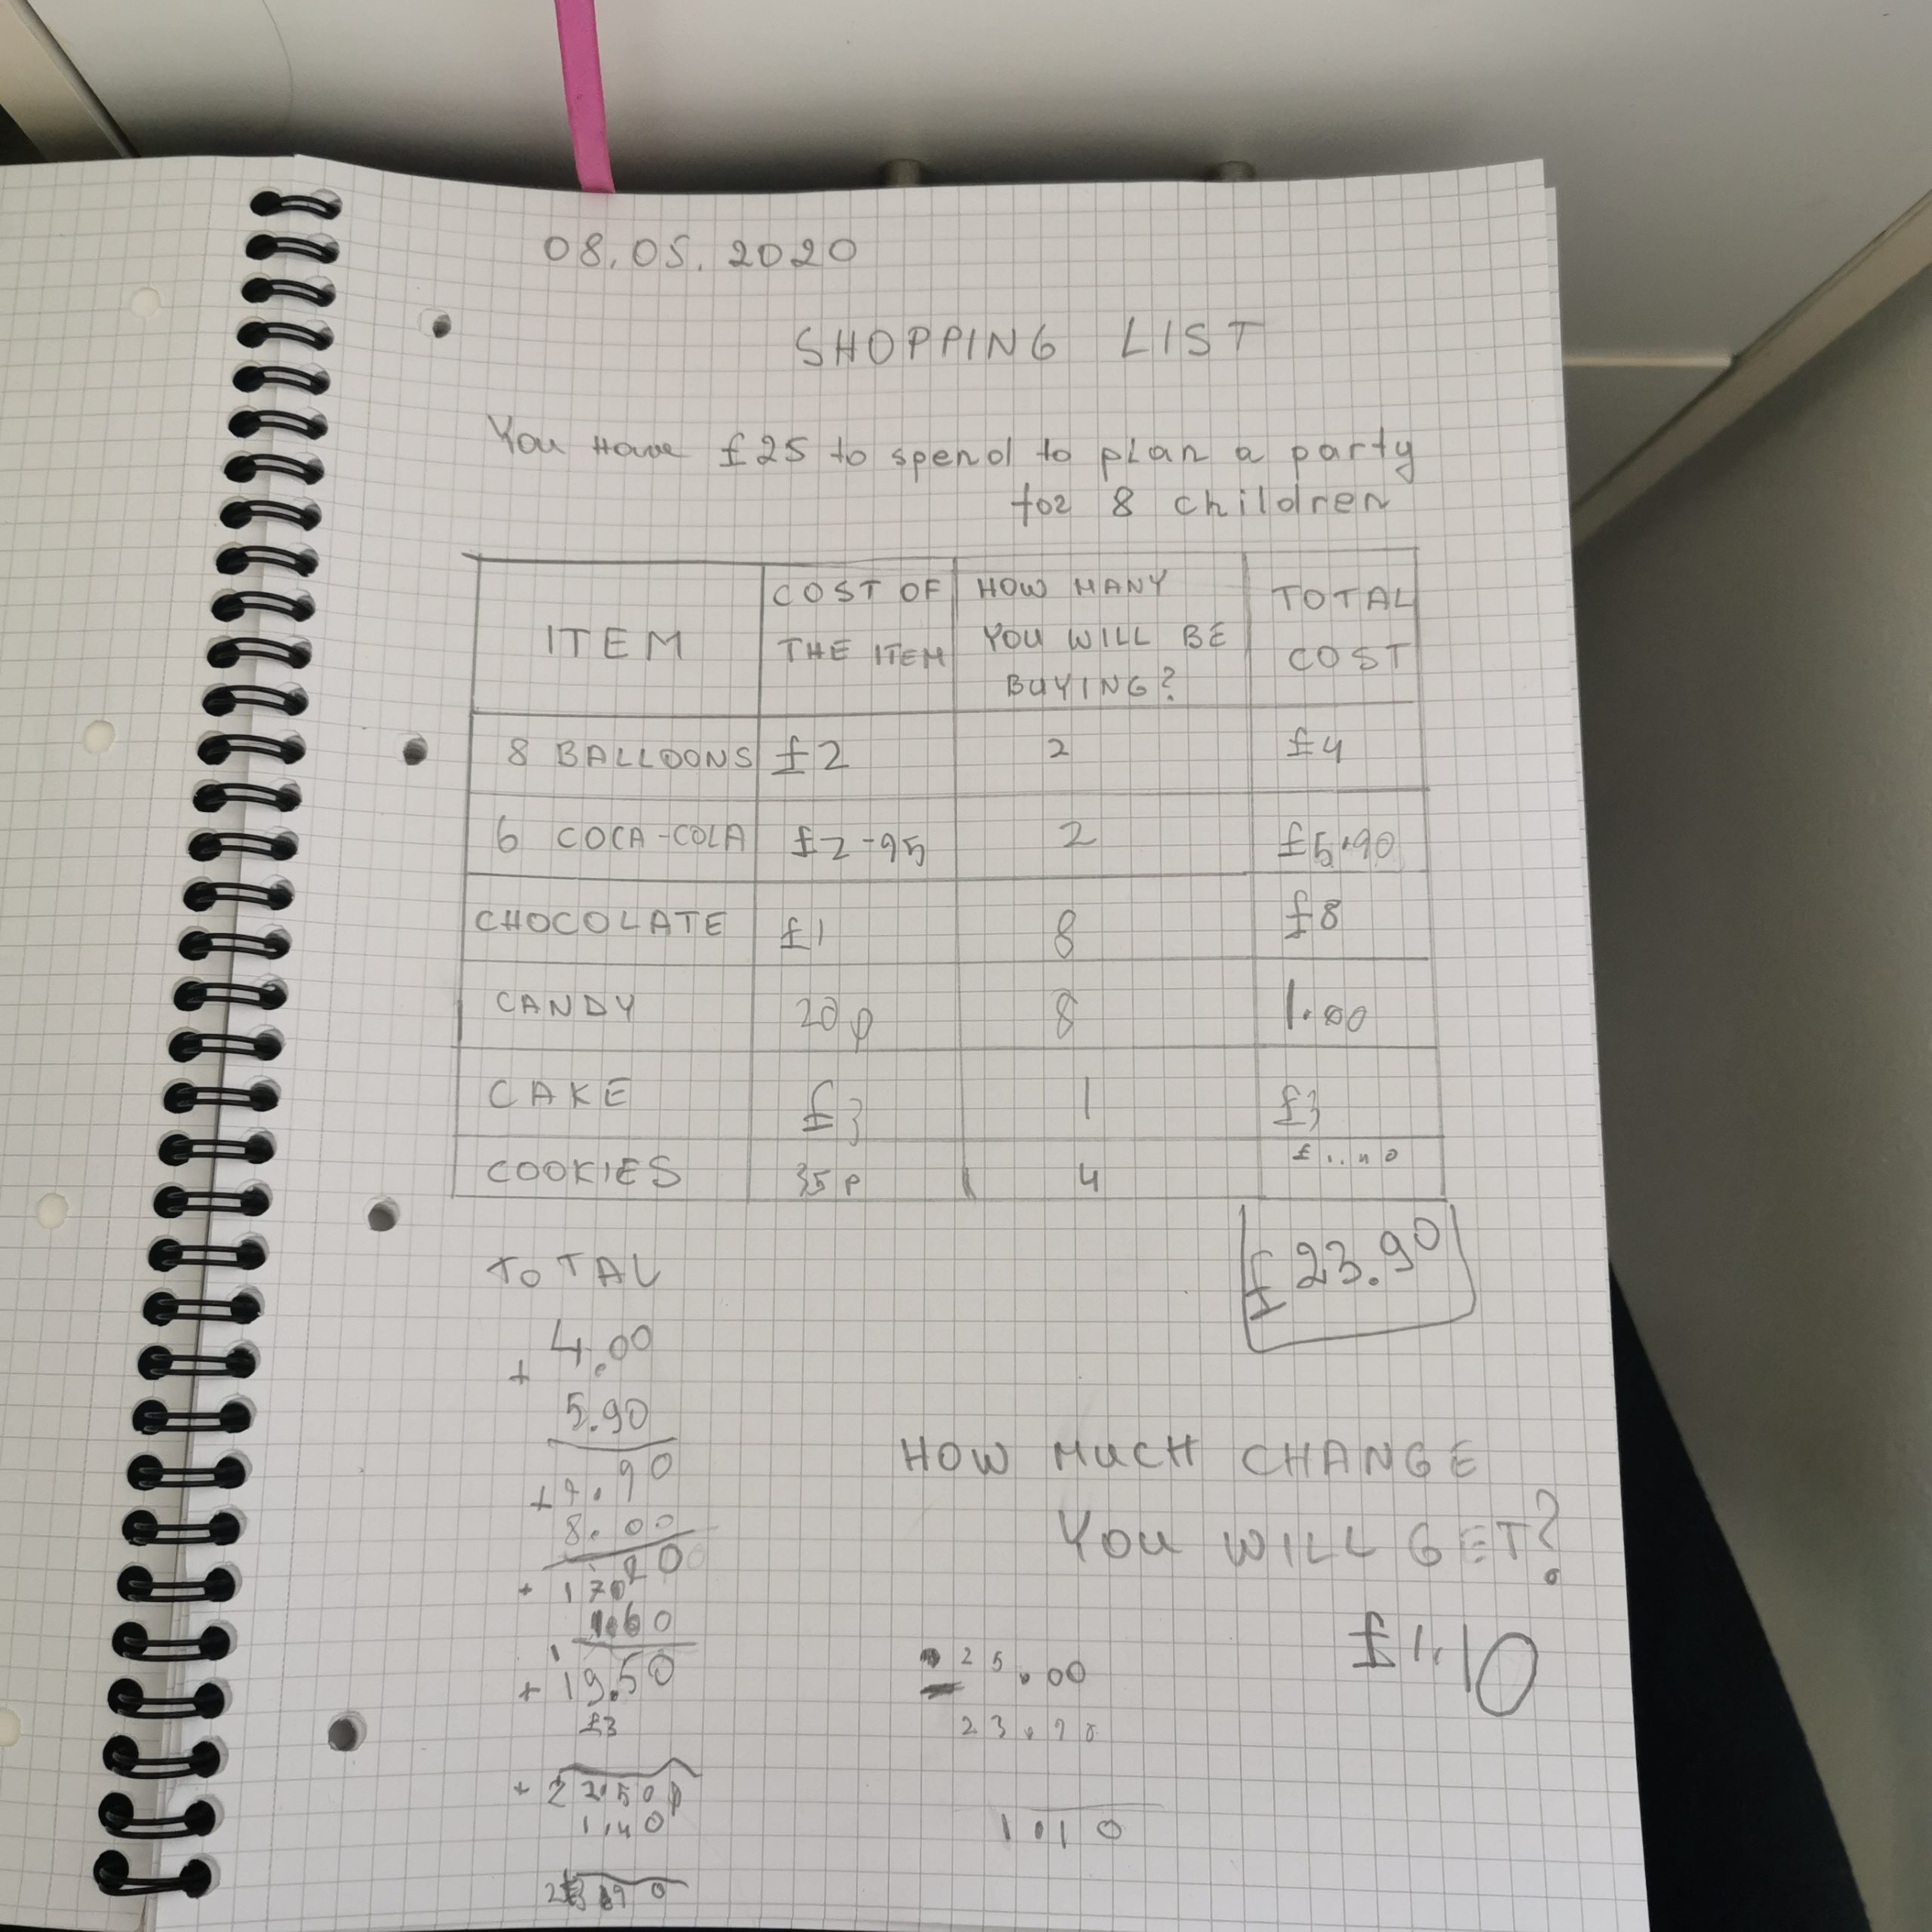 08.05.2020
SHOPPING LIST
You Have £25 to spend to plan a party
for 8 children
ITEM COST OF THE ITEM HOW MANY YOU WILL BE BUYING? TOTAL COST
8 BALLOONS £2 2 £4
6 COCA-COLA £2-95 2 £5.90
CHOCOLATE £1 8 £8
CANDY 20p 8
CAKE £3 1 £3
COOKIES 35p 4 £1.40
£23.90
TOTAL
4.00
+
5.90
9.90
+
8.00
+ 17.90
1.60
1
+ 19.50
£3
+ 22.50
1.40
23.90
HOW MUCH CHANGE
YOU WILL GET?
£1.10
- 25.00
23.90
1.10